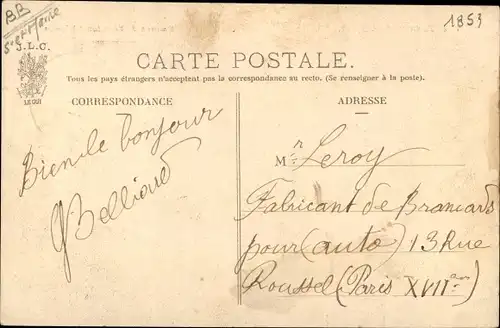 BB
Set Marne
1859
J.L.C.
LE GUI
CARTE POSTALE.
Tous les pays étrangers n'acceptent pas la correspondance au recto. (Se renseigner à la poste).
CORRESPONDANCE
ADRESSE
Bien le bonjour
Mr Leroy
Fabricant de Brancards
pour (auto) 13 Rue
Roussel (Paris XVII